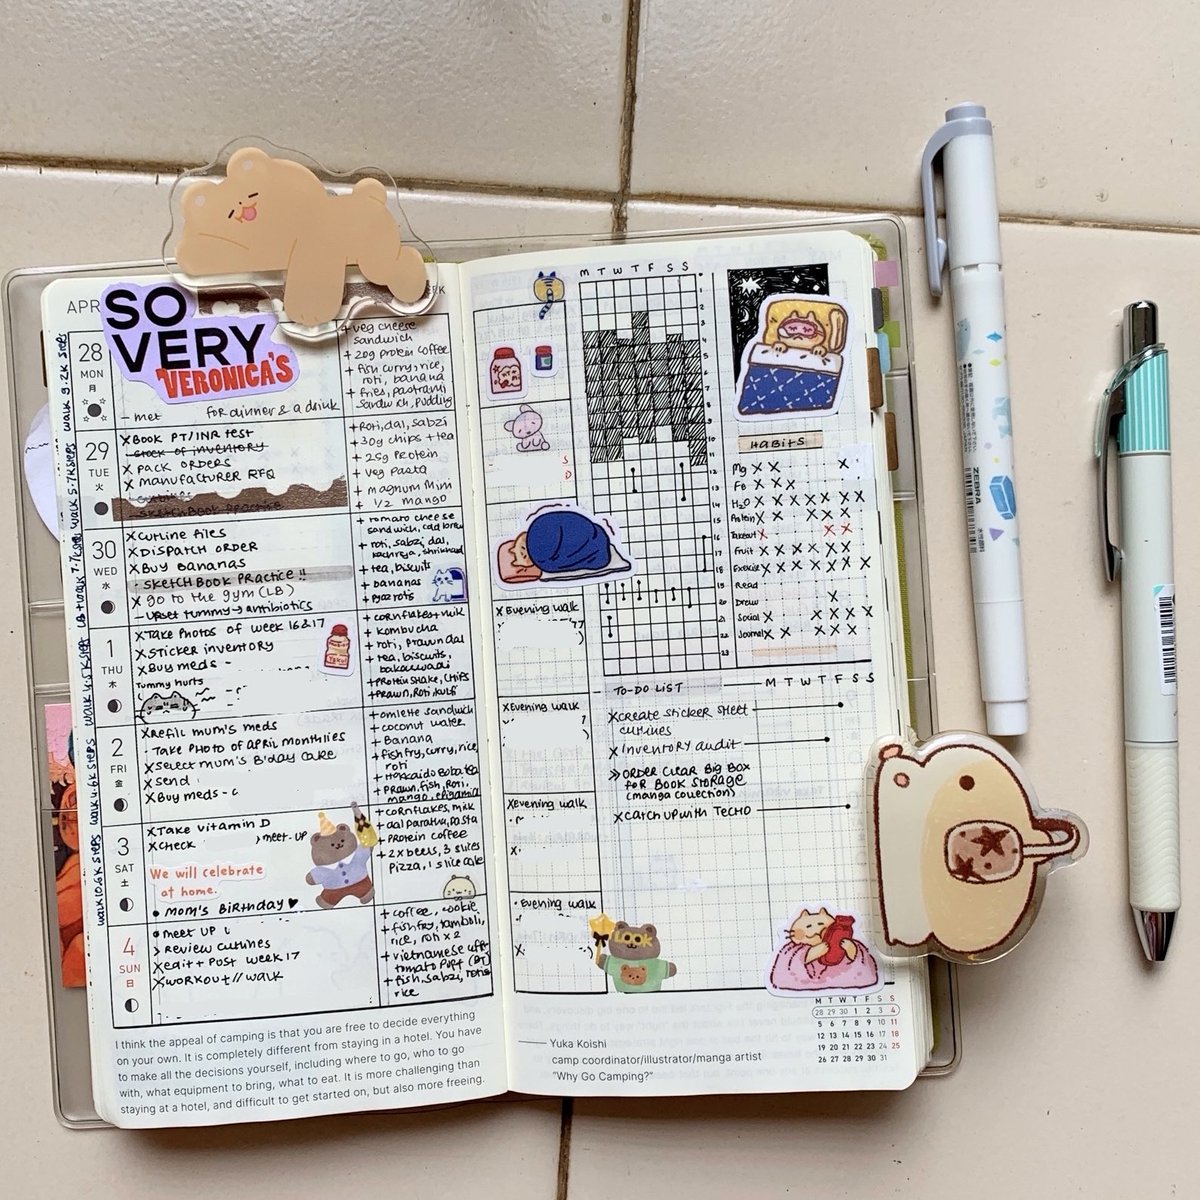 APR
SO
VERY
VERONICA'S
28
MON
月
walk 9.2K steps
- met for dinner & a drink
+ veg cheese
sandwich
+ 20g protein coffee
+ fish curry, rice,
roti, banana
+ fries, pastrami
sandwich, pudding
29
TUE
火
walk 5.7K steps
X Book PT/INR test
- stock of inventory
X pack orders
X manufacturer RFQ
- sketchbook practice
+ Roti, dal, sabzi
+ 30g chips + tea
+ 25g protein
+ veg pasta
+ magnum mini
+ 1/2 mango
30
WED
水
X cutline files
X Dispatch order
X Buy bananas
· sketchbook practice!!
X go to the gym (LB)
- upset tummy → antibiotics
+ tomato cheese
sandwich, cold brew
+ roti, sabzi dal,
+ tea, biscuits
+ bananas
1
THU
木
walk 4.5K steps
X Take photos of week 16 & 17
X sticker inventory
X Buy meds -
Tummy hurts
+ cornflakes + milk
+ kombucha
+ roti, prawn dal
+ tea, biscuits,
bakarwadi
+ protein shake, chips
+ prawn, roti, kulfi
2
FRI
金
walk 4.6K steps
X refil mum's meds
· Take photo of April monthlies
X select mum's B'day cake
X send
X Buy meds -
+ omlette sandwich
+ coconut water
+ Banana
+ fish fry, curry, rice,
roti
+ Hokkaido Boba tea
+ prawn, fish, roti,
3
SAT
土
walk 10.6K steps
X Take vitamin D
X check meet-up
We will celebrate
at home.
• mom's Birthday ♥
+ cornflakes, milk
+ dal paratha, pasta
+ protein coffee
+ 2 x beers, 3 slices
pizza, 1 slice cake
4
SUN
日
• meet up
> Review cutlines
X edit + post week 17
X workout // walk
+ coffee, cookie
+ fish fry, tamboli,
rice, roti x 2
+ vietnamese
+ fish, sabzi, rotis
rice
I think the appeal of camping is that you are free to decide everything
on your own. It is completely different from staying in a hotel. You have
to make all the decisions yourself, including where to go, who to go
with, what equipment to bring, what to eat. It is more challenging than
staying at a hotel, and difficult to get started on, but also more freeing.
M T W T F S S
1
2
3
4
5
6
7
8
9
10
11
12
13
14
15
16
17
18
19
20
21
22
23
S
D
Habits
Mg X X X
FO X X X
H2O X X X X X X X
Protein X X X X X
Takeout X X X
Fruit X X X X X X
Exercise X X X X X X
Read
Drew X
Social X X X X X X
Journal X X X X X
X Evening walk
X Evening walk
X Evening walk
· Evening walk
TO-DO LIST
M T W T F S S
X create sticker sheet
cutlines
X Inventory audit
» order clear big box
for book storage
(manga collection)
X catch up with Techo
LOOK
Yuka Koishi
camp coordinator/illustrator/manga artist
"Why Go Camping?"
M T W T F S S
28 29 30 1 2 3 4
5 6 7 8 9 10 11
12 13 14 15 16 17 18
19 20 21 22 23 24 25
26 27 28 29 30 31
ZEBRA